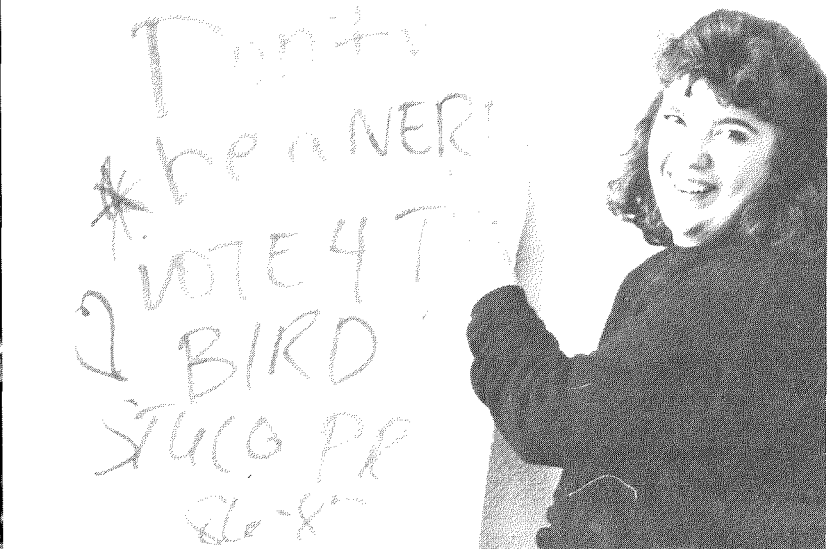 Don't
be a NERD
VOTE 4 T
BIRD
STUCO PR